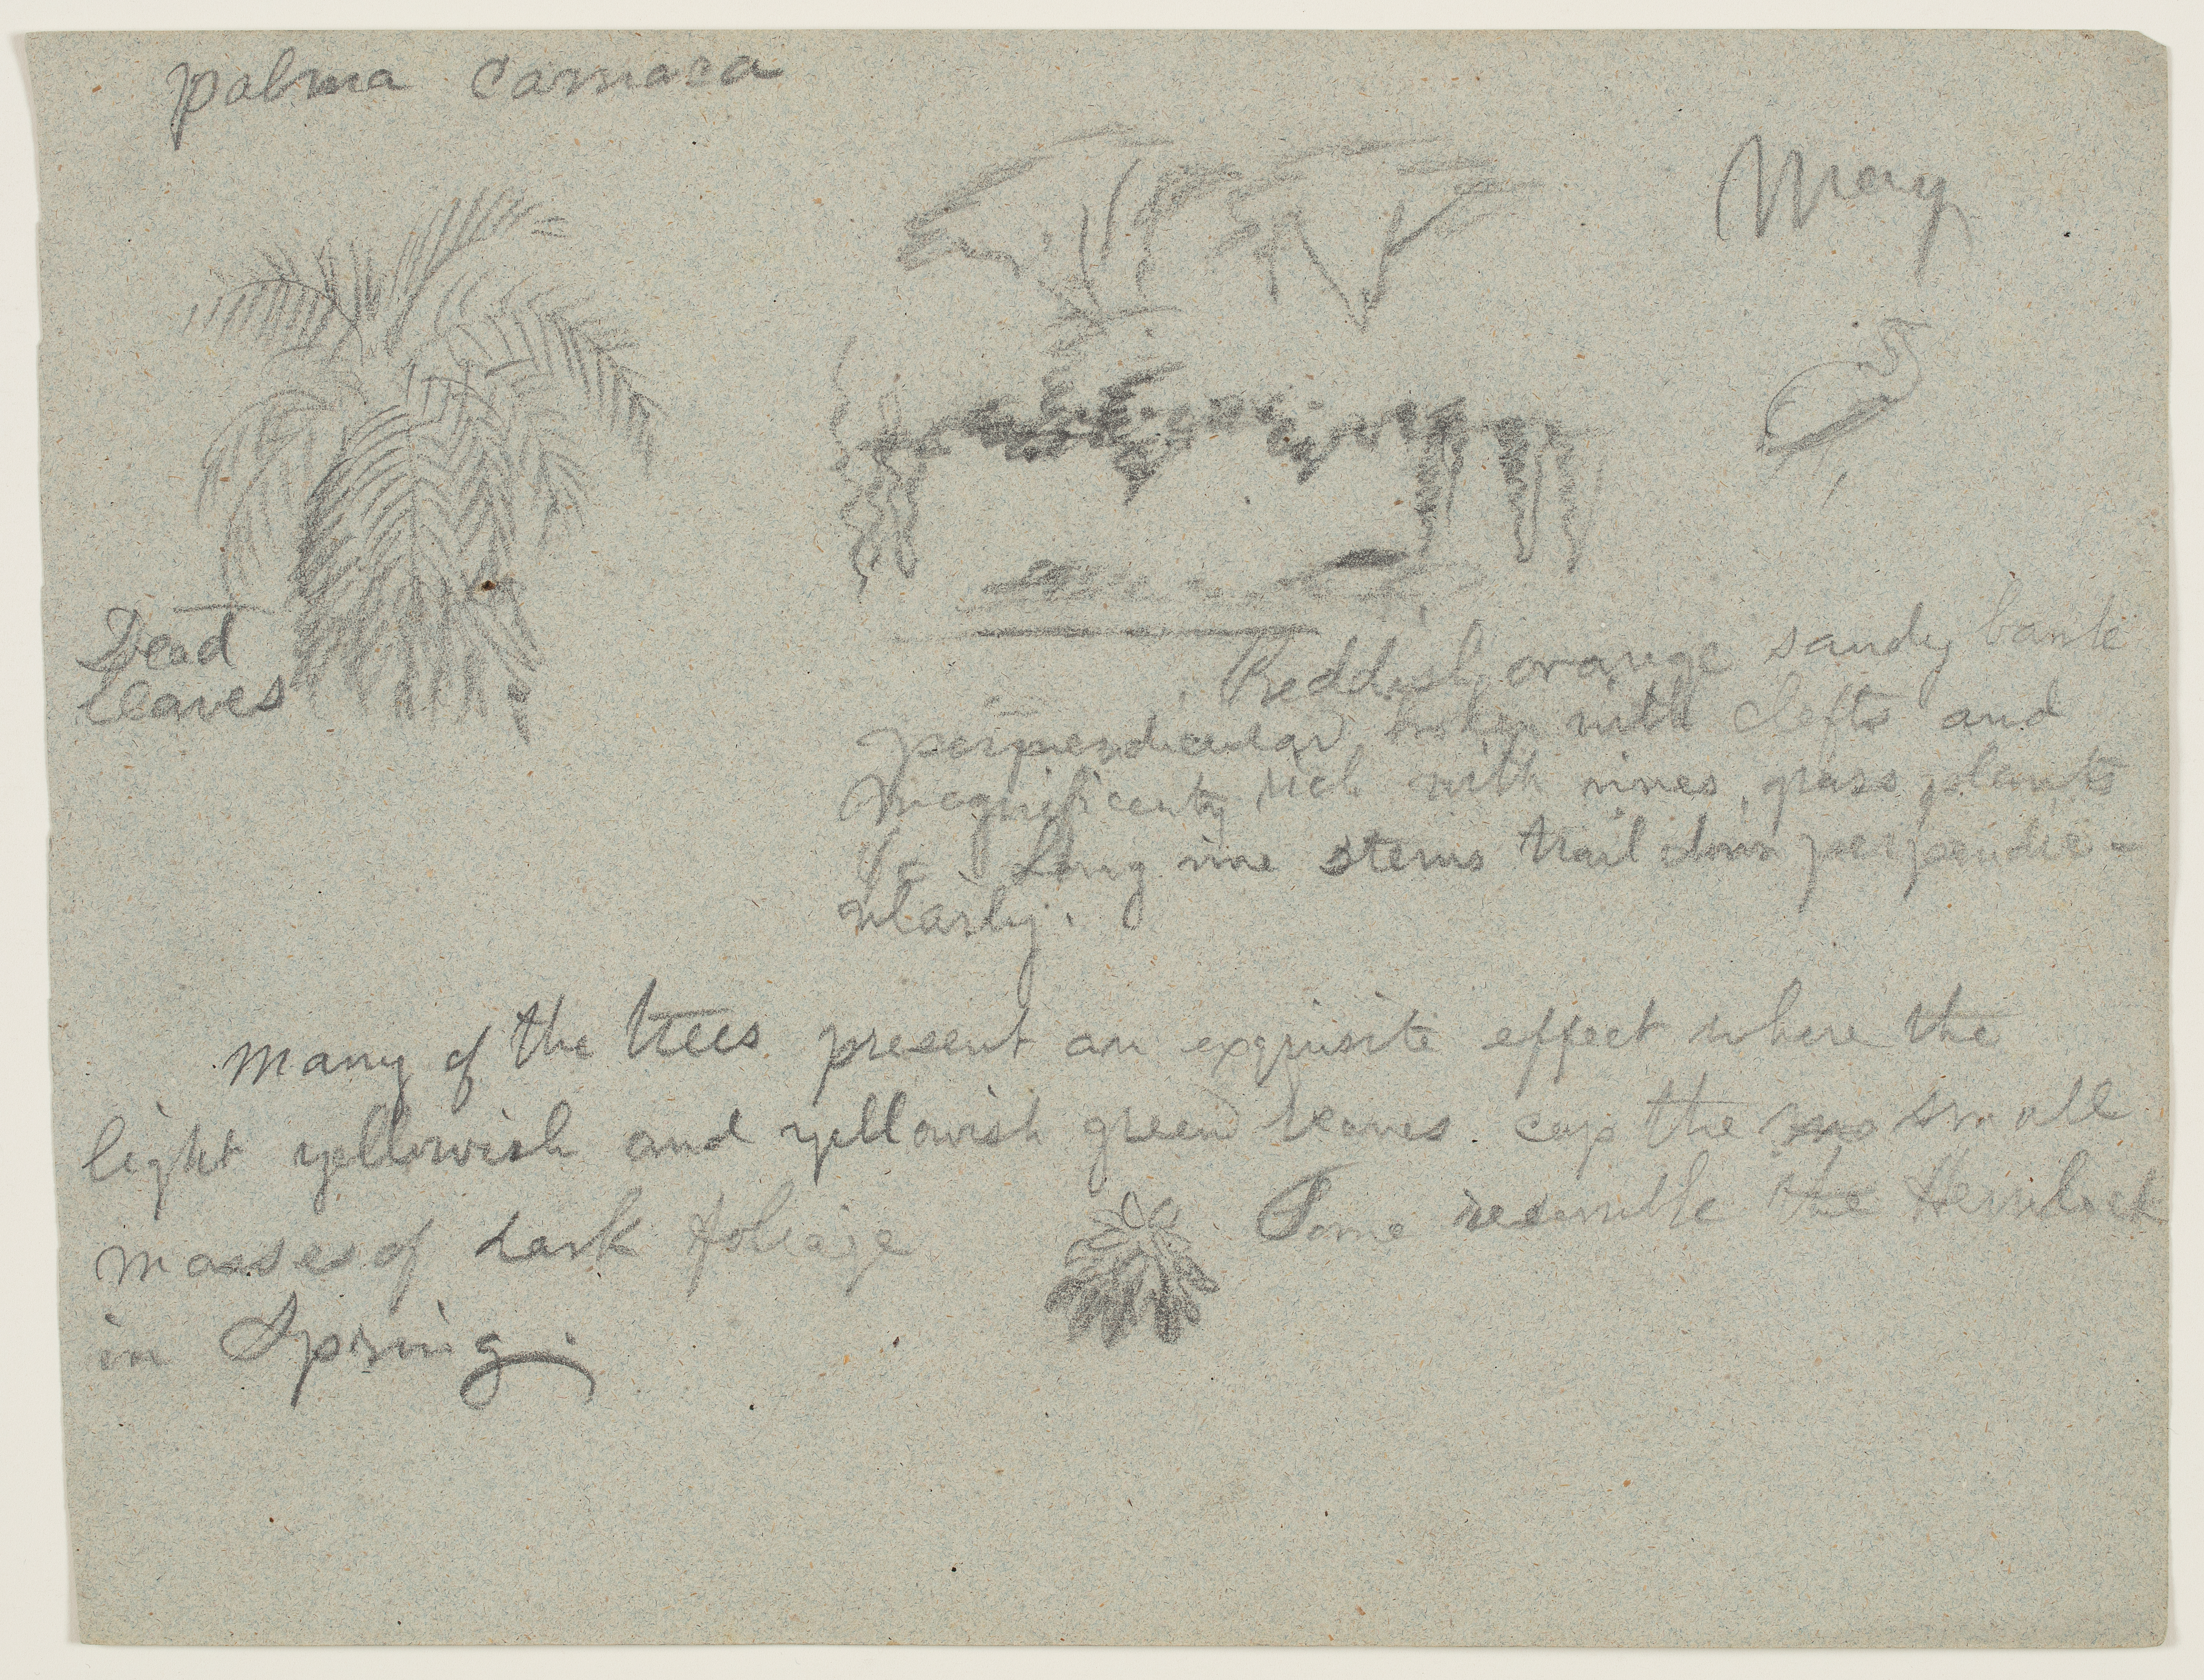 palma
May
Dead
leaves
Reddish orange sandy bank
perpendicular, broken with clefts and
magnificently rich with vines, grass, plants
&c Long vine stems trail down perpendic-
ularly.
Many of the trees present an exquisite effect where the
light yellowish and yellowish green leaves. cap the small
masses of dark foliage
Some resemble the Hemlock
in Spring